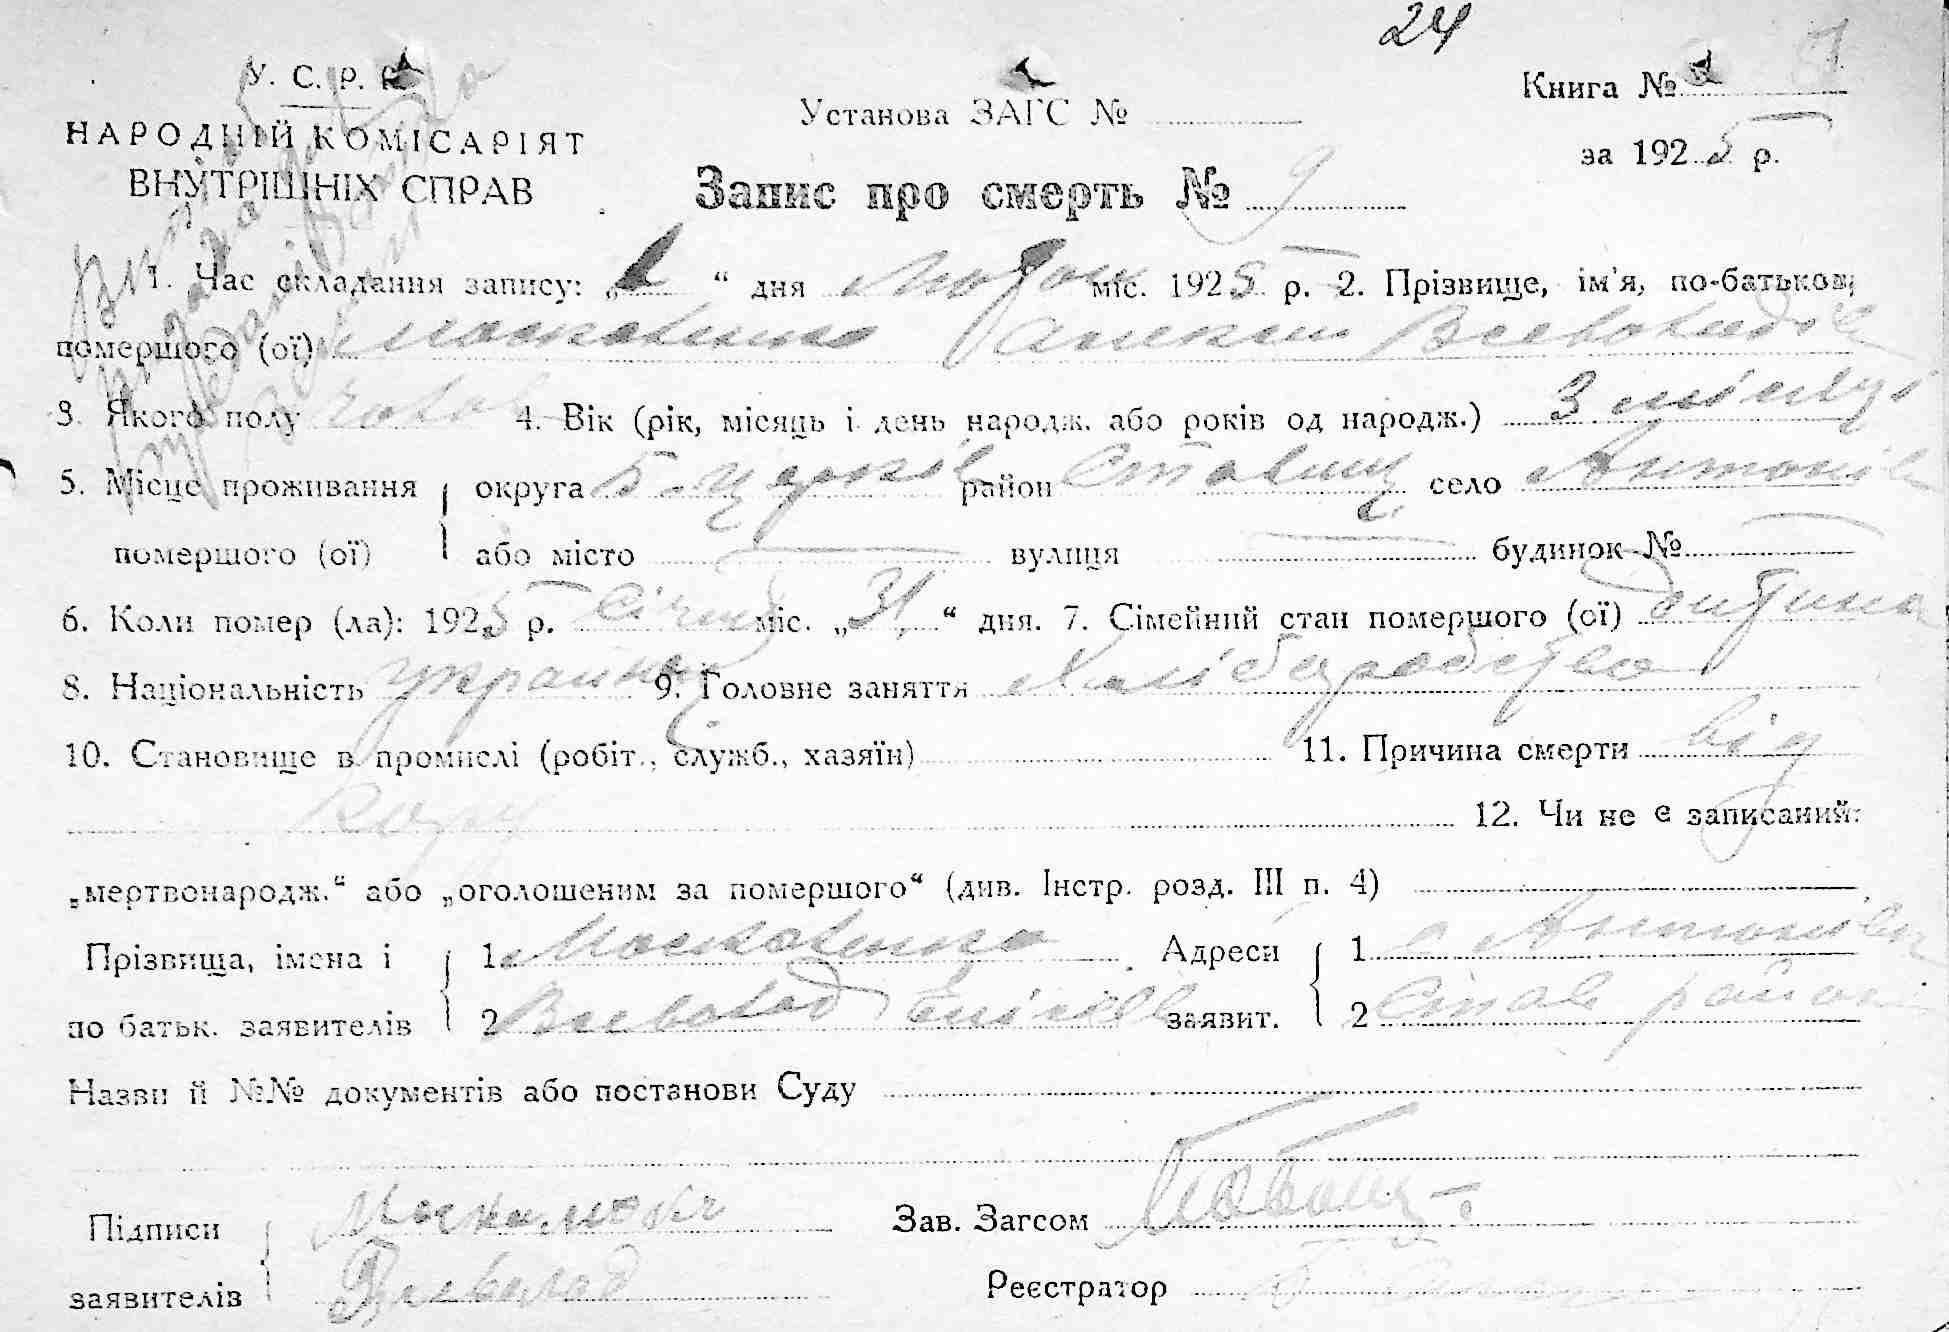 24
У. С. Р. Р.
НАРОДНІЙ КОМІСАРІЯТ
ВНУТРІШНІХ СПРАВ
Установа ЗАГС №
Книга №
за 1925 р.
Запис про смерть № 9
1. Час складання запису: „1“ дня Лютого міс. 1925 р. 2. Прізвище, ім'я, по-батькові
помершого (ої) Московенко Всеволодов
3. Якого полу чолов 4. Вік (рік, місяць і день народж. або років од народж.) 3 місяці
5. Місце проживання округа Б-Церків район Ставищ село Антонів
помершого (ої) або місто вулиця будинок №
6. Коли помер (ла): 1925 р. Січня міс. „31“ дня. 7. Сімейний стан помершого (ої) дитина
8. Національність україн 9. Головне заняття Хліборобство
10. Становище в промислі (робіт., служб., хазяїн) 11. Причина смерти від
кору 12. Чи не є записаний:
„мертвонародж.“ або „оголошеним за помершого“ (див. Інстр. розд. III п. 4)
Прізвища, імена і 1 Московенко Адреси 1 с Антонівка
по батьк. заявителів 2 Всеволод заявит. 2 Став район
Назви й №№ документів або постанови Суду
Підписи Зав. Загсом
заявителів Всеволод Реєстратор